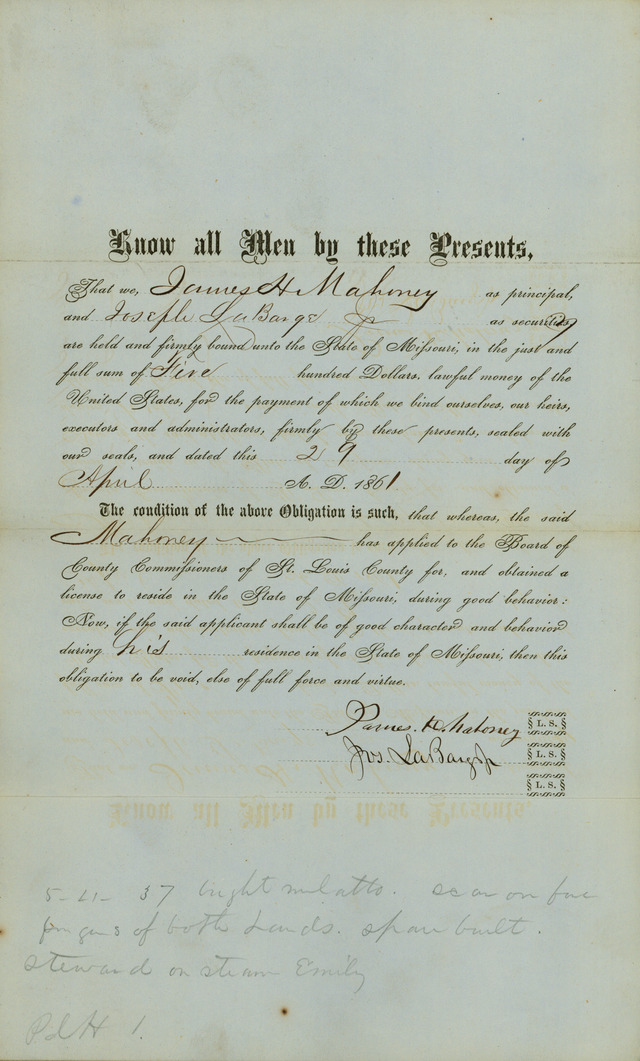 Know all Men by these Presents,
That we, James H Mahoney as principal,
and Joseph LaBarge Jr as security
are held and firmly bound unto the State of Missouri, in the just and
full sum of Five hundred Dollars, lawful money of the
United States, for the payment of which we bind ourselves, our heirs,
executors and administrators, firmly by these presents, sealed with
our seals, and dated this 29 day of
April A. D. 1861
The condition of the above Obligation is such, that whereas, the said
Mahoney has applied to the Board of
County Commissioners of St. Louis County for, and obtained a
license to reside in the State of Missouri, during good behavior:
Now, if the said applicant shall be of good character and behavior
during his residence in the State of Missouri, then this
obligation to be void, else of full force and virtue.
James. H. Mahoney L. S.
Jos. LaBarge Jr L. S.
L. S.
5-11- 37 bright mulatto. scar on fore
fingers of both hands. spare built.
steward on steam Emily
Pd H 1.